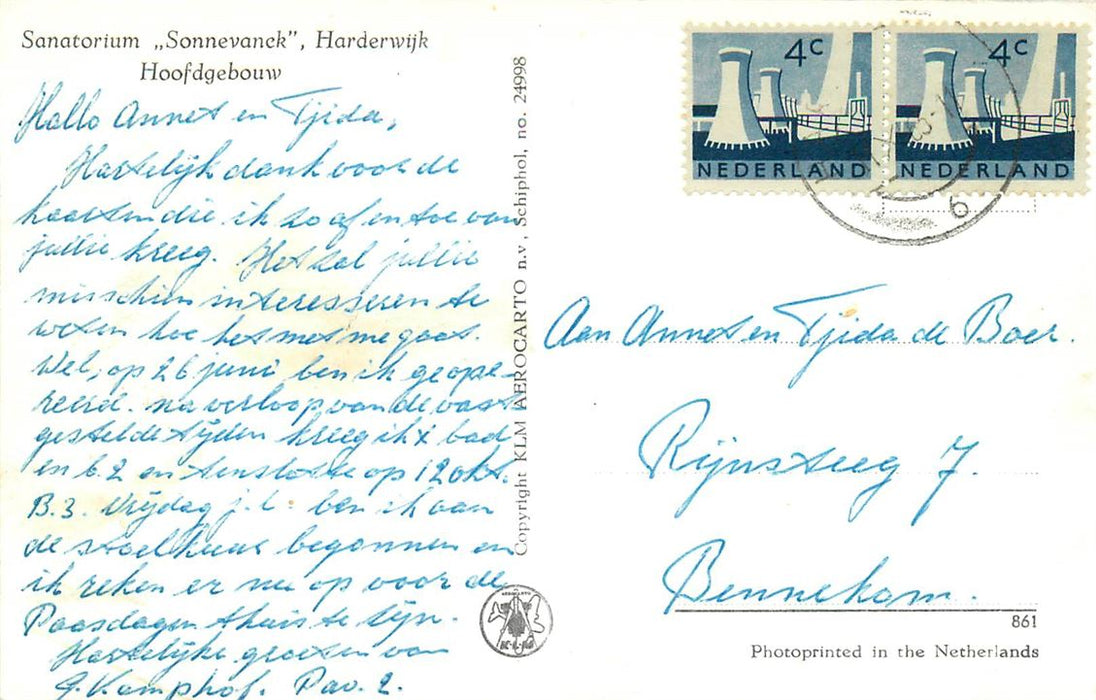 Sanatorium „Sonnevanck", Harderwijk
Hoofdgebouw
Hallo Annet en Tjida,
Hartelijk dank voor de
kaarten die ik zo af en toe van
jullie kreeg. Het zal jullie
misschien interesseren te
weten hoe het met me gaat.
Wel, op 26 juni ben ik geope-
reerd. na verloop van de vast
gestelde tijden kreeg ik x bad
en b.2 en tenslotte op 12 okt.
B.3. Vrijdag j.l. ben ik aan
de stoelkuur begonnen en
ik reken er nu op voor de
Paasdagen thuis te zijn.
Hartelijke groeten van
G. Kamphof. Pav. 2.
Copyright KLM AEROCARTO n.v. Schiphol, no. 24998
AEROCARTO
K·L·M
4c
NEDERLAND
4c
NEDERLAND
6
Aan Annet en Tjida de Boer.
Rijnsteeg 7.
Bennekom.
861
Photoprinted in the Netherlands